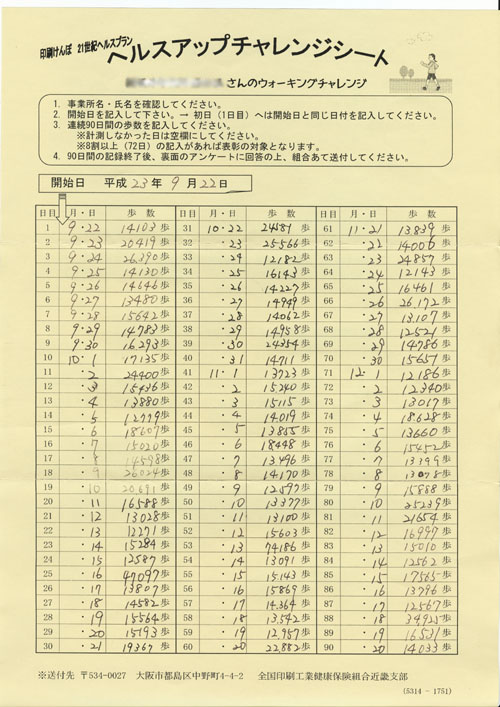 印刷けんぽ 21世紀ヘルスプラン
ヘルスアップチャレンジシート
さんのウォーキングチャレンジ
1. 事業所名・氏名を確認してください。
2. 開始日を記入して下さい。→ 初日（1日目）へは開始日と同じ日付を記入してください。
3. 連続90日間の歩数を記入してください。
※計測しなかった日は空欄にしてください。
※8割以上（72日）の記入があれば表彰の対象となります。
4. 90日間の記録終了後、裏面のアンケートに回答の上、組合あて送付してください。
開始日 平成 23年 9月 22日
日目 月・日 歩数 日目 月・日 歩数 日目 月・日 歩数
1 9・22 14103歩 31 10・22 24581歩 61 11・21 13839歩
2 9・23 20419歩 32 ・23 25566歩 62 ・22 14006歩
3 9・24 26390歩 33 ・24 12182歩 63 ・23 24857歩
4 9・25 14130歩 34 ・25 16143歩 64 ・24 12143歩
5 9・26 14646歩 35 ・26 14227歩 65 ・25 16461歩
6 9・27 13480歩 36 ・27 14949歩 66 ・26 26172歩
7 9・28 15642歩 37 ・28 14062歩 67 ・27 13107歩
8 9・29 14783歩 38 ・29 14958歩 68 ・28 12521歩
9 9・30 16293歩 39 ・30 24354歩 69 ・29 14786歩
10 10・1 17135歩 40 ・31 14711歩 70 ・30 15657歩
11 ・2 24400歩 41 11・1 13723歩 71 12・1 12186歩
12 ・3 15436歩 42 ・2 15240歩 72 ・2 12340歩
13 ・4 13880歩 43 ・3 15115歩 73 ・3 13017歩
14 ・5 12779歩 44 ・4 14019歩 74 ・4 18628歩
15 ・6 18607歩 45 ・5 13855歩 75 ・5 13660歩
16 ・7 15020歩 46 ・6 18448歩 76 ・6 15452歩
17 ・8 14598歩 47 ・7 13496歩 77 ・7 13399歩
18 ・9 26024歩 48 ・8 14170歩 78 ・8 13078歩
19 ・10 20691歩 49 ・9 12597歩 79 ・9 15888歩
20 ・11 16588歩 50 ・10 13377歩 80 ・10 25239歩
21 ・12 13028歩 51 ・11 13100歩 81 ・11 21654歩
22 ・13 12271歩 52 ・12 15603歩 82 ・12 16997歩
23 ・14 15284歩 53 ・13 74186歩 83 ・13 15010歩
24 ・15 12587歩 54 ・14 13091歩 84 ・14 12562歩
25 ・16 47097歩 55 ・15 15143歩 85 ・15 17565歩
26 ・17 13807歩 56 ・16 15869歩 86 ・16 13796歩
27 ・18 14582歩 57 ・17 14364歩 87 ・17 12567歩
28 ・19 15564歩 58 ・18 13542歩 88 ・18 34925歩
29 ・20 15193歩 59 ・19 12957歩 89 ・19 16531歩
30 ・21 19367歩 60 ・20 22882歩 90 ・20 14033歩
※送付先 〒534-0027 大阪市都島区中野町4-4-2 全国印刷工業健康保険組合近畿支部
(5314 - 1751)